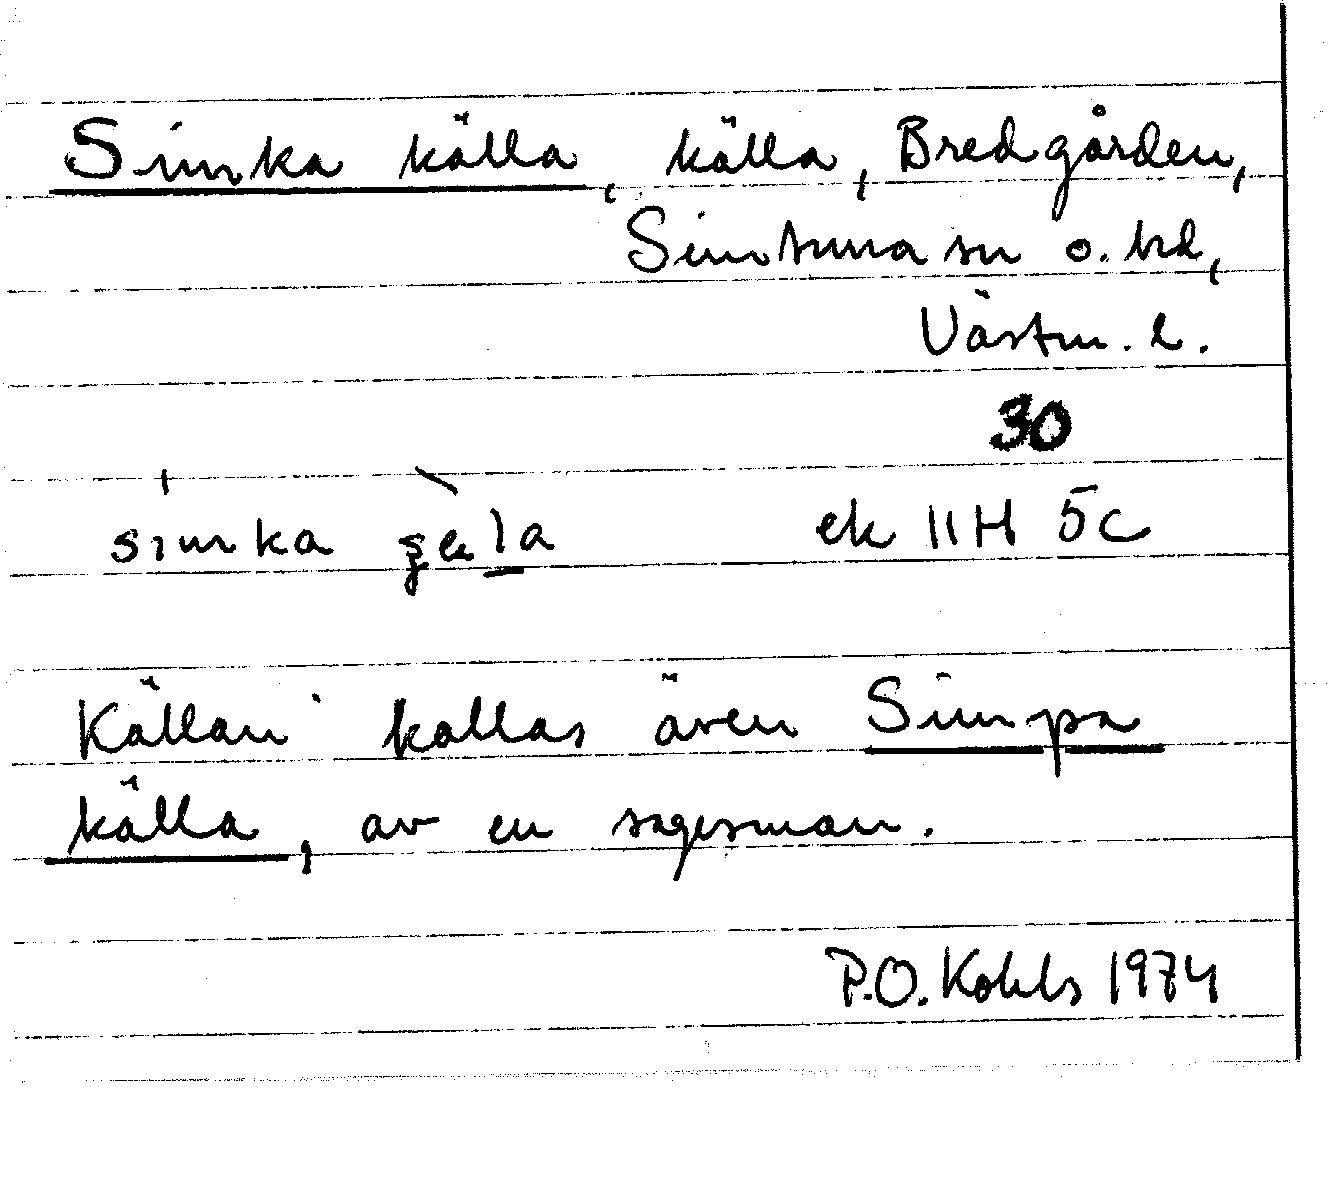 Simka källa, källa, Bredgården,
Simtuna sn o. hd,
Västm. l.
30
simka ek 11H 5c
Källan kallas även Simpa
källa, av en sagesman.
P.O. Kohls 1974